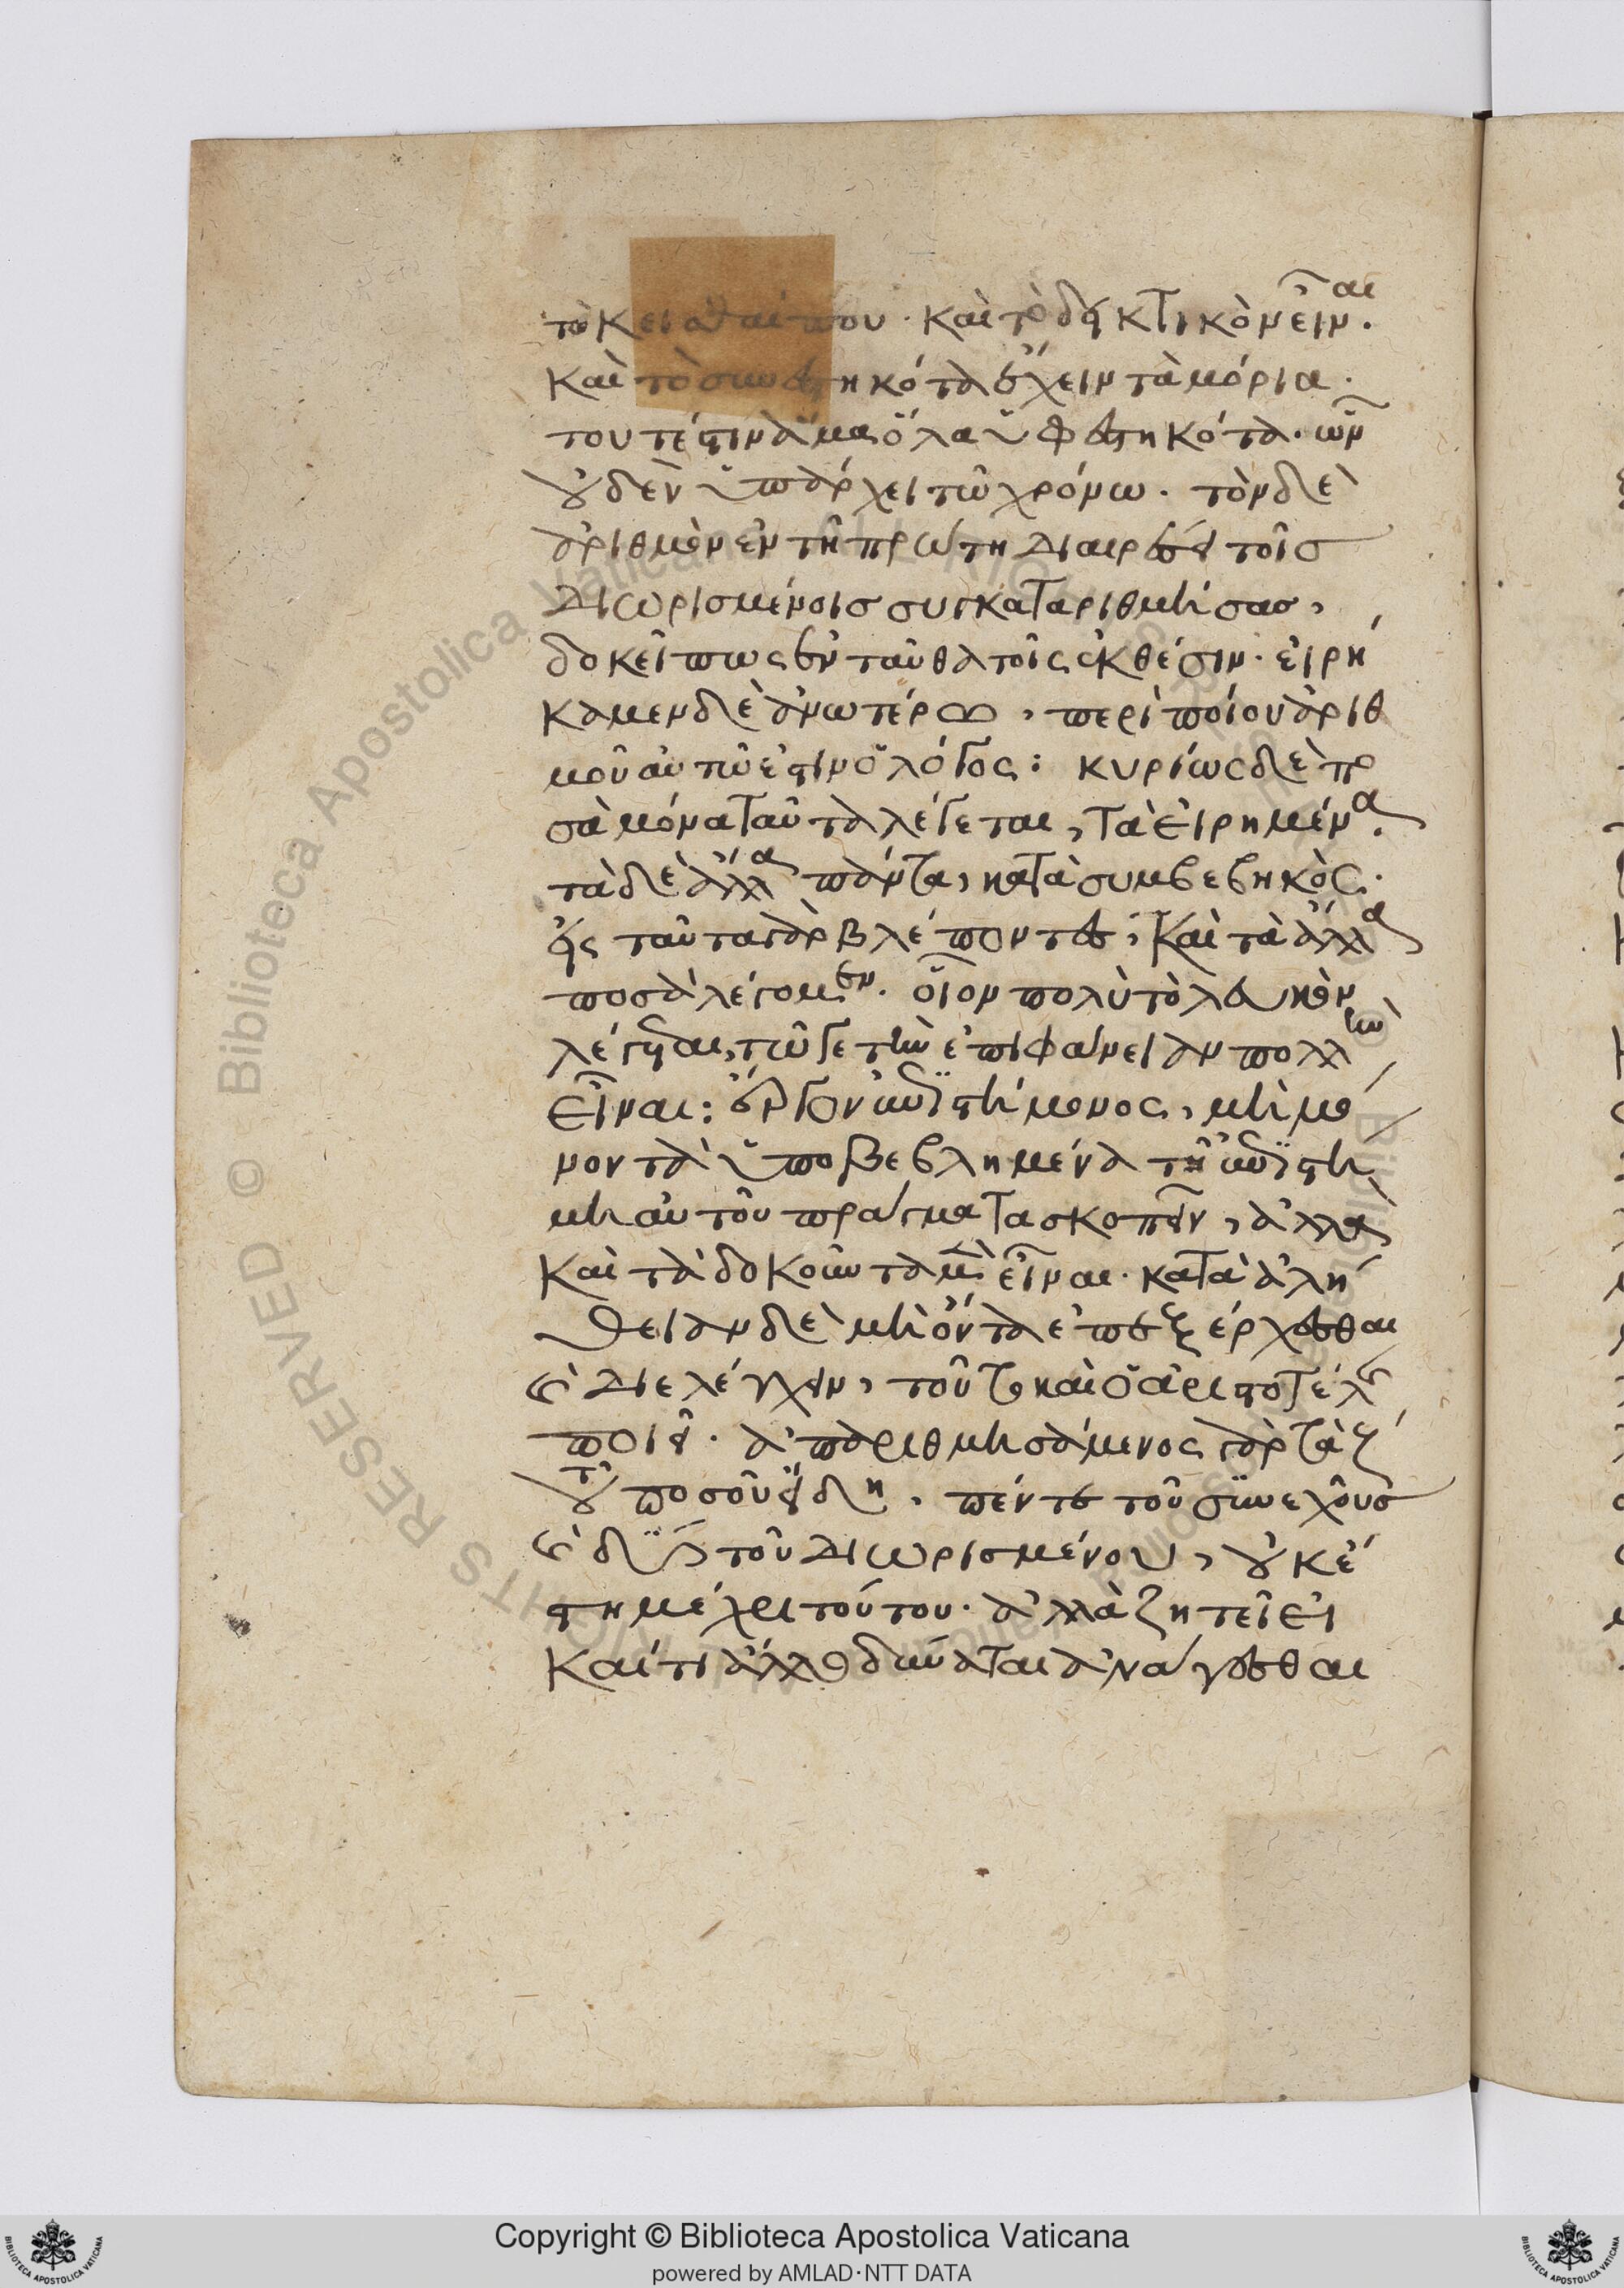 τὸ κεῖσθαί που. καὶ τὸ δεικτικὸν εἶναι.
καὶ τὸ συνεστηκότα ἔχειν τὰ μόρια.
τουτέστιν ἅμα ὅλα ὑφεστηκότα. ὧν
οὐδὲν ὑπάρχει τῷ χρόνω. τὸν δὲ
ἀριθμὸν ἐν τῇ πρώτη διαιρέσει τοῖς
διωρισμένοις συγκαταριθμήσας,
δοκεῖ πως ἐνταῦθα τοῖς ἐκθέσιν. εἰρή
καμεν δὲ ἀνωτέρω, περὶ ποίου ἀριθ
μοῦ αὐτῶ ἐστιν ὁ λόγος: κυρίως δὲ πο
σὰ μόνα ταῦτα λέγεται, τὰ εἰρημένα.
τὰ δὲ ἄλλα πάντα, κατὰ συμβεβηκός.
εἰς ταῦτα γὰρ βλέποντες, καὶ τὰ ἄλλα
ποσὰ λέγομεν. οἷον πολὺ τὸ λευκὸν
λέγεται, τῶ γε τὴν ἐπιφάνειαν πολλὴν
εἶναι: ἔργον ἐπιστήμονος, μὴ μό
νον τὰ ὑποβεβλημένα τῇ ἐπιστή
μη αὐτοῦ πράγματα σκοπεῖν, ἀλλὰ
καὶ τὰ δοκοῦντα μὲν εἶναι. κατὰ ἀλή
θειαν δὲ μὴ ὄντα ἐπεξέρχεσθαι
καὶ διελέγχειν, τοῦτο καὶ ὁ ἀριστοτέλης
ποιεῖ. ἀπαριθμησάμενος γὰρ τὰ ζ
τοῦ ποσοῦ εἴδη, πέντε τοῦ συνεχοῦς
καὶ δύο τοῦ διωρισμένου, οὐκ ἔ
στη μέχρι τούτου. ἀλλὰ ζητεῖ εἰ
καί τι ἄλλο δύναται ἀνάγεσθαι
© Biblioteca Apostolica Vaticana
ALL RIGHTS RESERVED
Copyright © Biblioteca Apostolica Vaticana
powered by AMLAD·NTT DATA